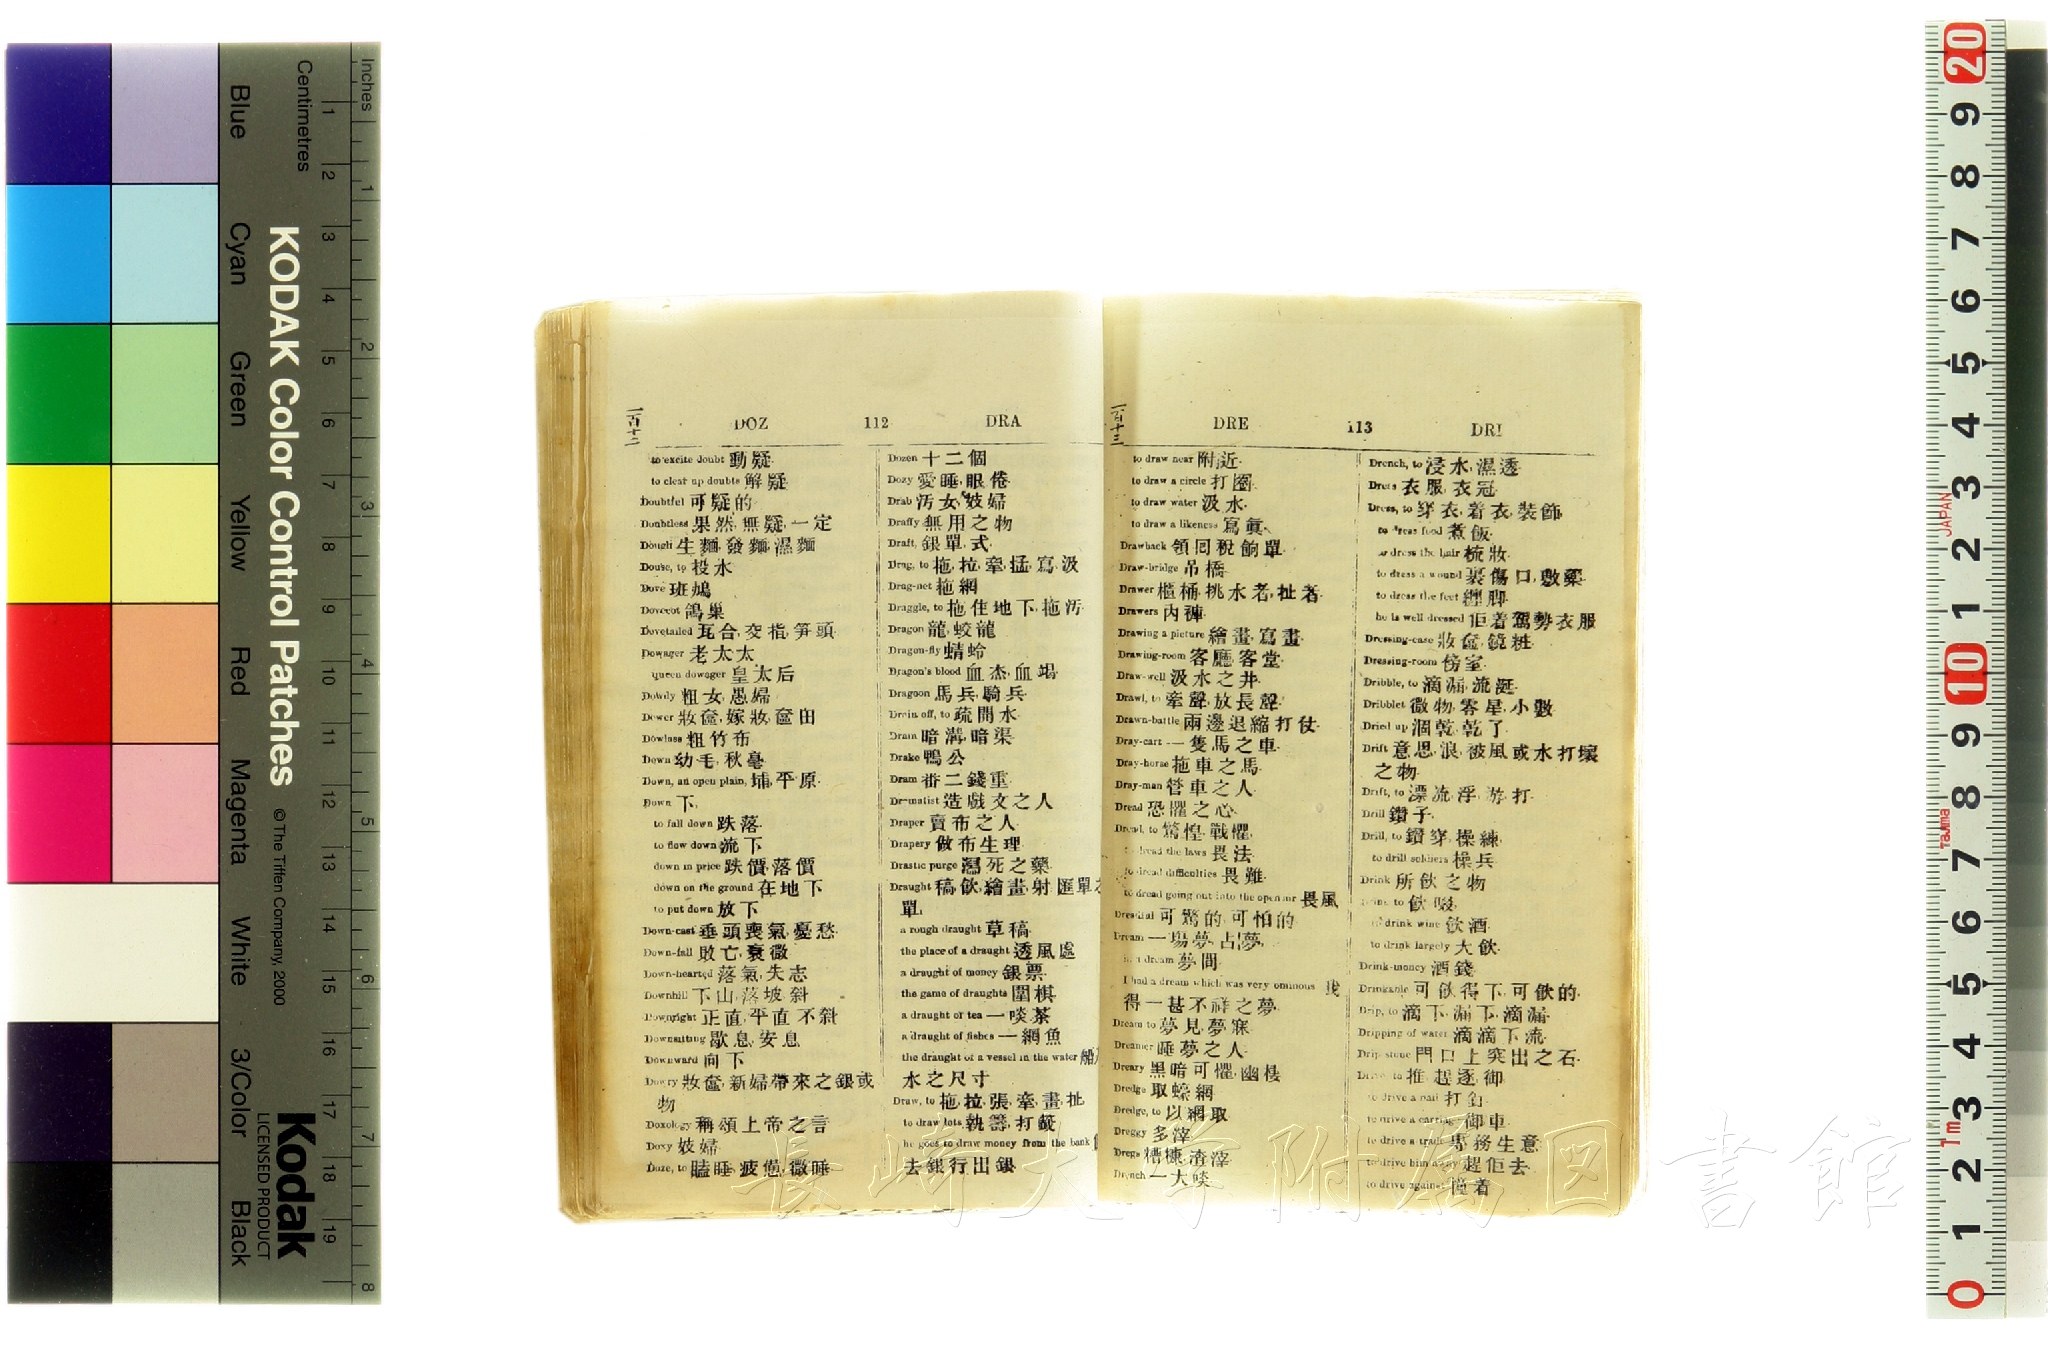 Inches
Centimetres
Blue
Cyan
Green
Yellow
Red
Magenta
White
3/Color
Black
KODAK Color Control Patches
© The Tiffen Company, 2000
Kodak
LICENSED PRODUCT
一百十二
DOZ 112 DRA
to excite doubt 動疑
to clear up doubts 解疑
Doubtful 可疑的
Doubtless 果然, 無疑, 一定
Dough 生麵, 發麵, 濕麵
Douse, to 投水
Dove 班鳩
Dovecot 鴿巢
Dovetailed 瓦合, 交指, 笋頭
Dowager 老太太
queen dowager 皇太后
Dowdy 粗女, 愚婦
Dower 妝奩, 嫁妝, 奩田
Dowlass 粗竹布
Down 幼毛, 秋毫
Down, an open plain, 埔, 平原
Down 下
to fall down 跌落
to flow down 流下
down in price 跌價, 落價
down on the ground 在地下
to put down 放下
Down-cast 垂頭喪氣, 憂愁
Down-fall 敗亡, 衰微
Down-hearted 落氣, 失志
Downhill 下山, 落坡, 斜
Downright 正直, 平直, 不斜
Downsitting 歇息, 安息
Downward 向下
Dowry 妝奩, 新婦帶來之銀或
物
Doxology 稱頌上帝之言
Doxy 妓婦
Doze, to 瞌睡, 疲憊, 微睡
Dozen 十二個
Dozy 愛睡, 眼倦
Drab 汚女, 妓婦
Draffy 無用之物
Draft, 銀單, 式
Drag, to 拖, 拉, 牽, 掹, 寫, 汲
Drag-net 拖網
Draggle, to 拖住地下, 拖汚
Dragon 龍, 蛟龍
Dragon-fly 蜻蛉
Dragon's blood 血杰, 血竭
Dragoon 馬兵, 騎兵
Drain off, to 疏開水
Drain 暗溝, 暗渠
Drake 鴨公
Dram 番二錢重
Dramatist 造戲文之人
Draper 賣布之人
Drapery 做布生理
Drastic purge 瀉死之藥
Draught 稿, 飲, 繪畫, 射, 匯單
單
a rough draught 草稿
the place of a draught 透風處
a draught of money 銀票
the game of draughts 圍棋
a draught of tea 一啖茶
a draught of fishes 一網魚
the draught of a vessel in the water 船
水之尺寸
Draw, to 拖, 拉, 張, 牽, 畫, 扯
to draw lots 執籌, 打籤
he goes to draw money from the bank
去銀行出銀
一百十三
DRE 113 DRI
to draw near 附近
to draw a circle 打圈
to draw water 汲水
to draw a likeness 寫眞
Drawback 領回稅餉單
Draw-bridge 吊橋
Drawer 櫃桶, 挑水者, 扯者
Drawers 內褲
Drawing a picture 繪畫, 寫畫
Drawing-room 客廳, 客堂
Draw-well 汲水之井
Drawl, to 牽聲, 放長聲
Drawn-battle 兩邊退縮打仗
Dray-cart 一隻馬之車
Dray-horse 拖車之馬
Dray-man 管車之人
Dread 恐懼之心
Dread, to 驚惶, 戰懼
to dread the laws 畏法
to dread difficulties 畏難
to dread going out into the open air 畏風
Dreadful 可驚的, 可怕的
Dream 一塲夢, 占夢
in a dream 夢間
I had a dream which was very ominous 我
得一甚不祥之夢
Dream to 夢見, 夢寐
Dreamer 睡夢之人
Dreary 黑暗可懼, 幽棲
Dredge 取蠔網
Dredge, to 以網取
Dreggy 多滓
Dregs 糟糠, 渣滓
Drench 一大啖
Drench, to 浸水, 濕透
Dress 衣服, 衣冠
Dress, to 穿衣, 着衣, 裝飾
to dress food 煮飯
to dress the hair 梳妝
to dress a wound 裹傷口, 敷藥
to dress the feet 纏脚
he is well dressed 佢着駕勢衣服
Dressing-case 妝奩, 鏡粧
Dressing-room 傍室
Dribble, to 滴漏, 流涎
Dribblet 微物, 零星, 小數
Dried up 涸乾, 乾了
Drift 意思, 浪, 被風或水打壞
之物
Drift, to 漂流, 浮, 游, 打
Drill 鑽子
Drill, to 鑽穿, 操練
to drill soldiers 操兵
Drink 所飲之物
Drink, to 飲, 啜
to drink wine 飲酒
to drink largely 大飲
Drink-money 酒錢
Drinkable 可飲得下, 可飲的
Drip, to 滴下, 漏下, 滴漏
Dripping of water 滴滴下流
Drip-stone 門口上突出之石
Drive, to 推, 趕逐, 御
to drive a nail 打釘
to drive a carriage 御車
to drive a trade 專務生意
to drive him away 趕佢去
to drive against 撞着
長崎大学附属図書館
JAPAN
Tajima
1m